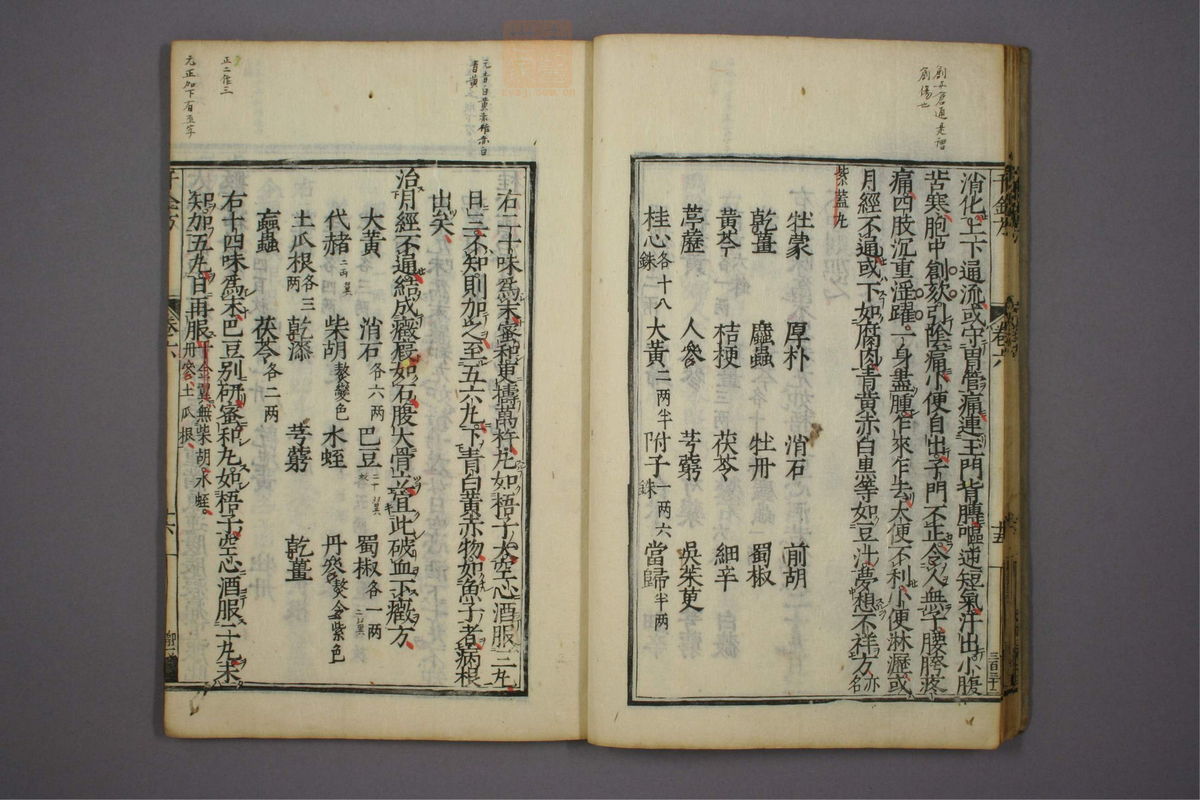 消化上下通流或守胃管痛連玉門背膊嘔逆短氣汗出少腹
苦寒胞中創欬引陰痛小便自出子門不正令人無子腰胯疼
痛四肢沉重淫躍一身盡腫乍來乍去大便不利小便淋瀝或
月經不通或下如腐肉青黃赤白黑等如豆汁夢想不祥方亦名
紫蓋丸
牡蒙 厚朴 消石 前胡
乾薑 䗪蟲 牡丹 蜀椒
黃芩 桔梗 茯苓 細辛
葶藶 人參 芎藭 吳茱萸
桂心各十八銖 大黃二兩半 附子一兩六銖 當歸半兩
右二十味爲末蜜和更擣萬杵丸如梧子大空心酒服三丸
日三不知則加之至五六丸下青白黃赤物如魚子者病根
出矣
治月經不通結成癥瘕如石腹大骨立宜此破血下癥方
大黃 消石各六兩 巴豆 蜀椒各一兩
代赭 柴胡熬變色 水蛭 丹參熬令紫色
土瓜根各三兩 乾漆 芎藭 乾薑
蝱蟲 茯苓各二兩
右十四味爲末巴豆別研蜜和丸如梧子空心酒服二丸未
知加五丸日再服千金翼無柴胡水蛭丹參土瓜根
千金方
卷六
正二作三
元正如下有至字